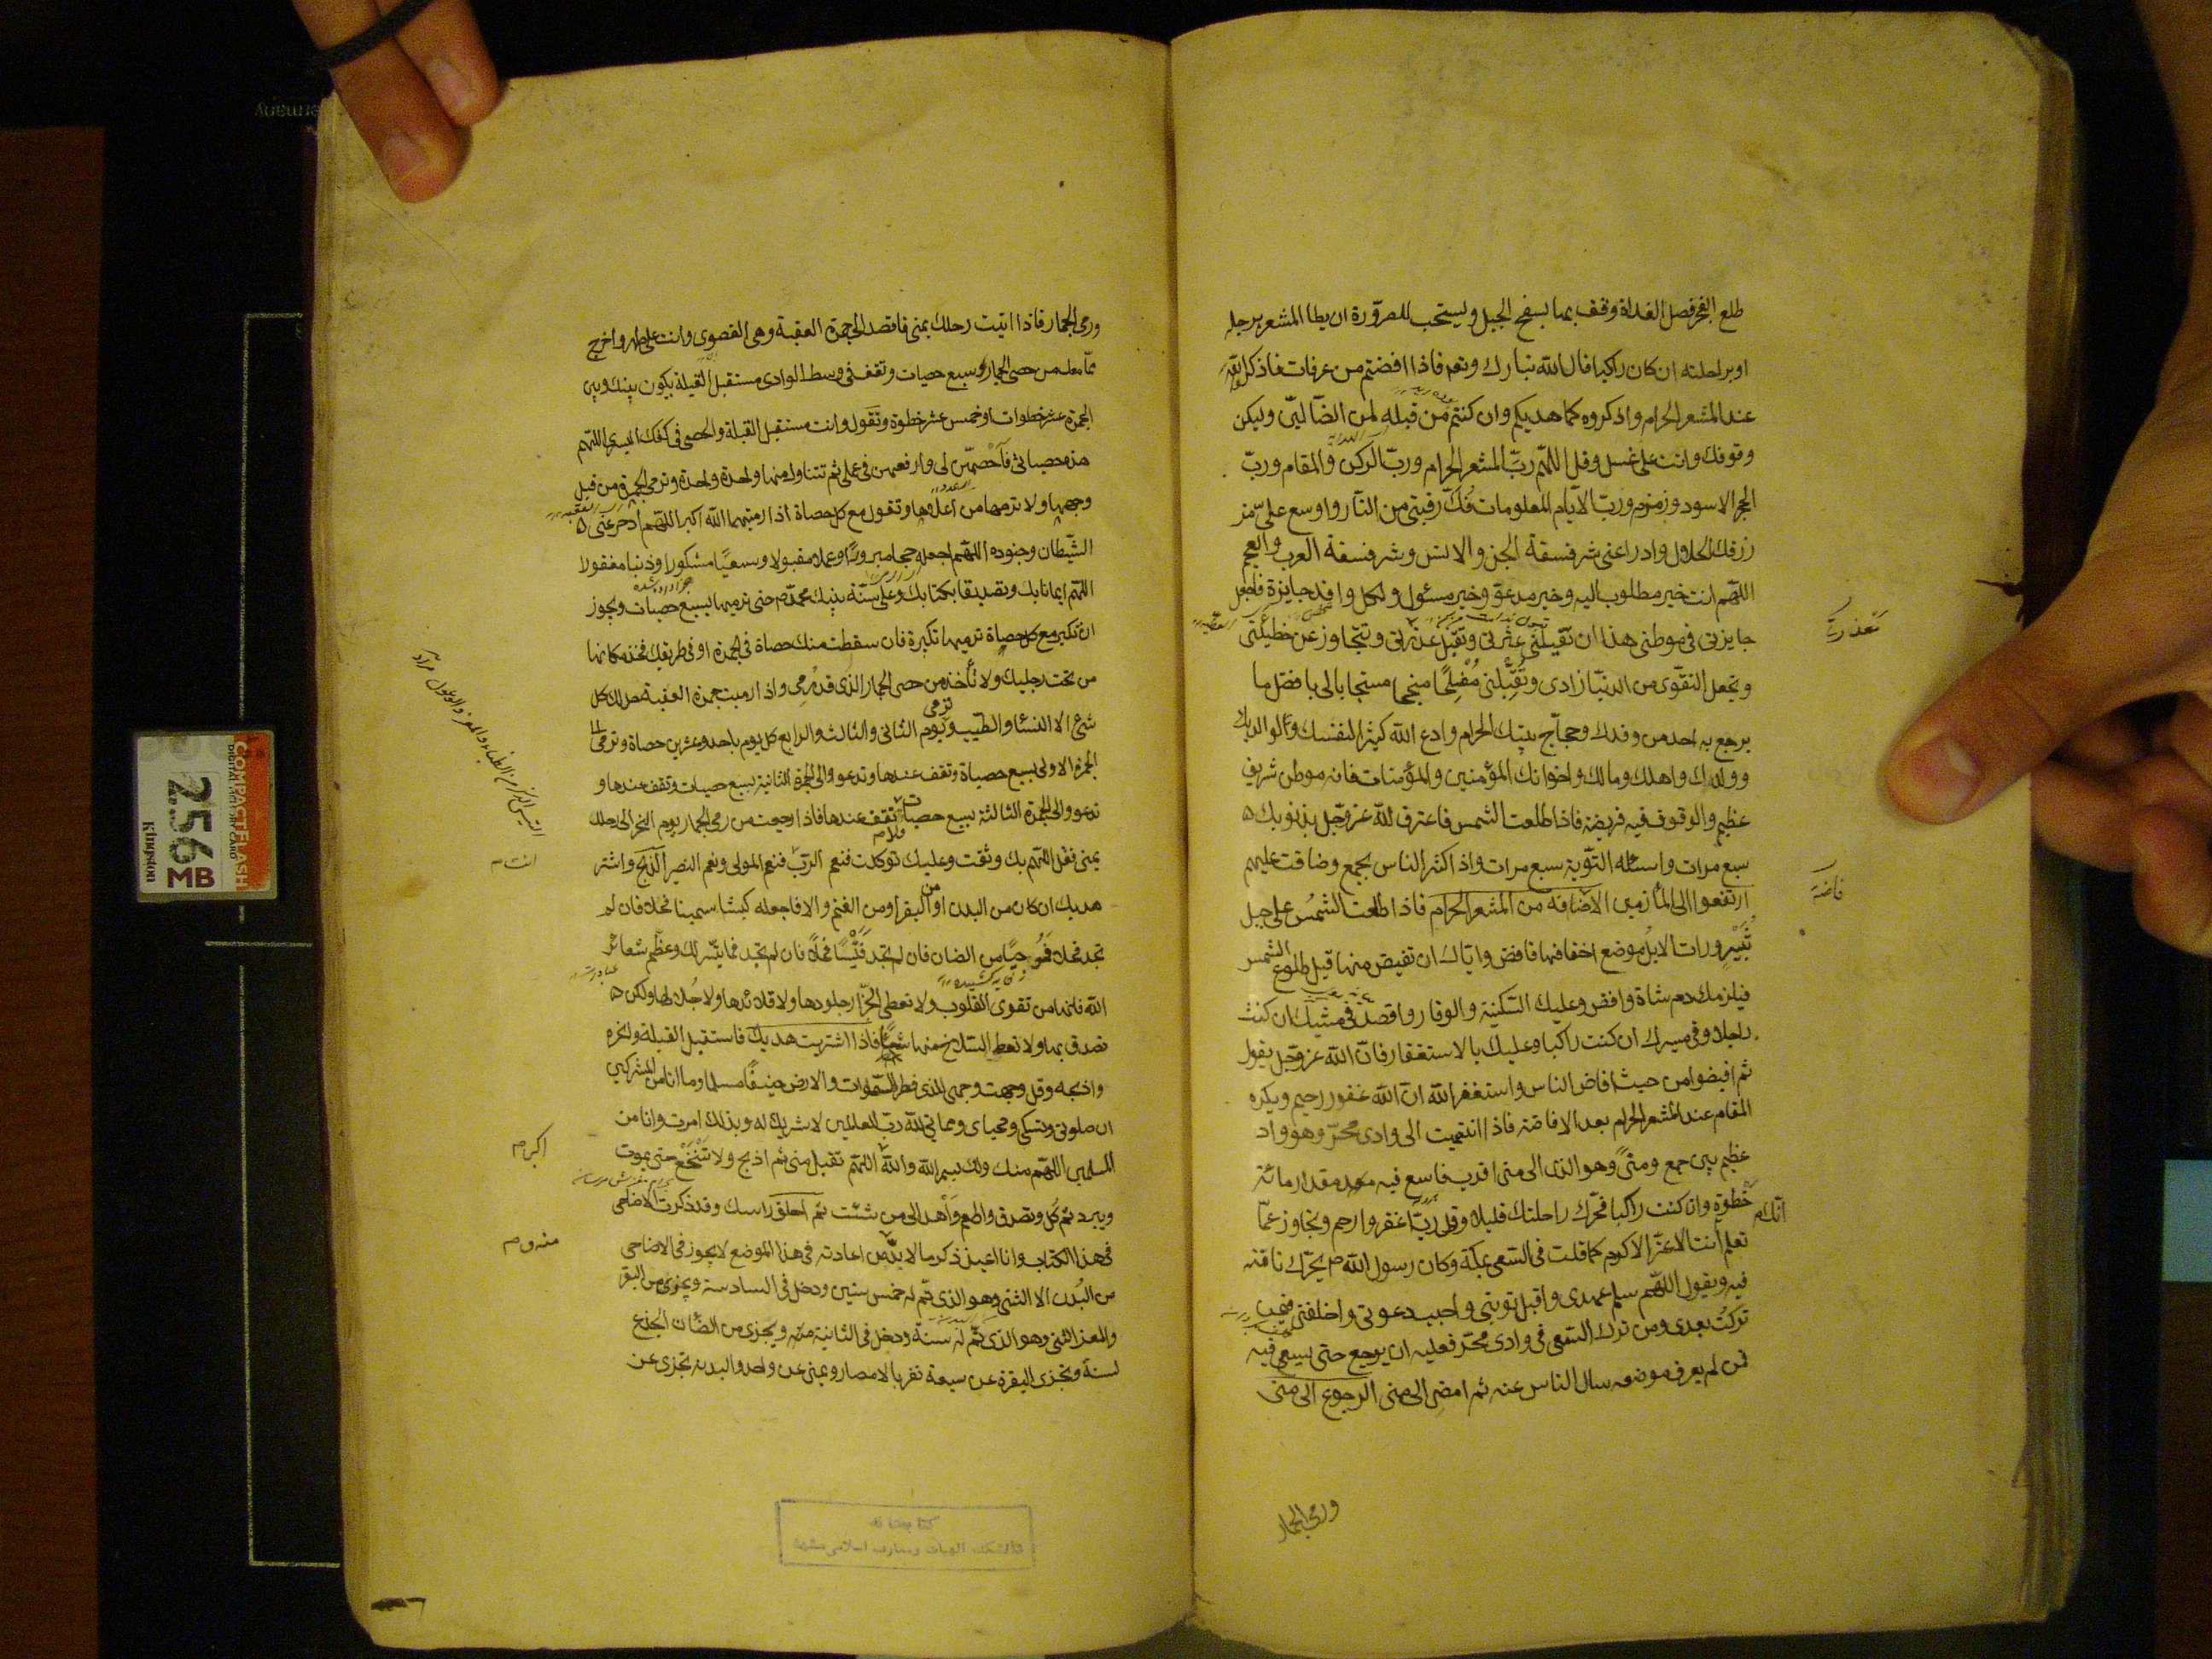 طلع الفجر فصل الغداة وقف بها بسفح الجبل ويستحب للصرورة ان يطا المشعر برجله
او براحلته ان كان راكبا قال الله تبارك وتعه فاذا افضتم من عرفات فاذكروا الله
عند المشعر الحرام واذكروه كما هديكم وان كنتم من قبله لمن الضالين وليكن
وقوفك وانت على غسل وقل اللهم رب المشعر الحرام ورب الركن والمقام ورب
الحجر الاسود وزمزم ورب الايام المعلومات فك رقبتى من النار واوسع على من
رزقك الحلال وادرا عنى شر فسقة الجن والانس وشر فسقة العرب والعجم
اللهم انت خير مطلوب اليه وخير مدعو وخير مسئول ولكل وافد جايزة فاجعل
جايزتى فى موطنى هذا ان تقيلنى عثرتى وتقبل عذرتى وتتجاوز عن خطيئتى
معذرتى
وتجعل التقوى من الدنيا زادى وتقبلنى مفلحا منجحا مستجابا لى بافضل ما
يرجع به احد من وفدك وحجاج بيتك الحرام وادع الله كثيرا لنفسك ولوالديك
وولدك واهلك ومالك واخوانك المؤمنين والمؤمنات فانه موطن شريف
عظيم والوقوف فيه فريضة فاذا طلعت الشمس فاعترف لله عز وجل بذنوبك
سبع مرات واسئله التوبة سبع مرات واذا كثر الناس بجمع وضاقت عليهم
ارتفعوا الى المأزمين الافاضة من المشعر الحرام فاذا طلعت الشمس على جبل
فاضة
ثبير ورات الابل موضع اخفافها فافض واياك ان تفيض منها قبل طلوع الشمس
فيلزمك دم شاة وافض وعليك السكينة والوقار واقصد فى مشيك ان كنت
راجلا وفى مسيرك ان كنت راكبا وعليك بالاستغفار فان الله عز وجل يقول
ثم افيضوا من حيث افاض الناس واستغفر الله ان الله غفور رحيم ويكره
المقام عند المشعر الحرام بعد الافاضة فاذا انتهيت الى وادى محسر وهو واد
عظيم بين جمع ومنى وهو الذى الى منى اقرب فاسع فيه مقدار مائة
خطوة وان كنت راكبا فحرك راحلتك قليلا وقل رب اغفر وارحم وتجاوز عما
انك
تعلم انت الاعز الاكرم كما قلت فى السعى بمكة وكان رسول الله ص يحرك ناقته
فيه ويقول اللهم سلم عهدى واقبل توبتى واجب دعوتى واخلفنى فيمن
تركت بعدى ومن ترك السعى فى وادى محسر فعليه ان يرجع حتى يسعى فيه
فمن لم يعرف موضعه سال الناس عنه ثم امض الى منى الرجوع الى منى
ورمى الجمار
ورمى الجمار فاذا اتيت رحلك بمنى فاقصد الى جمرة العقبة وهى القصوى وانت على طهر واخرج
مما معك من حصى الجمار سبع حصيات وتقف فى وسط الوادى مستقبل القبلة يكون بينك وبين
الجمرة عشر خطوات او خمس عشر خطوة وتقول وانت مستقبل القبلة والحصى فى كفك اليسرى اللهم
هذه حصياتى فاحصهن لى وارفعهن فى عملى ثم تتناول منها واحدة واحدة وترمى الجمرة من قبل
وجهها ولا ترمها من اعلاها وتقول مع كل حصاة اذا رميتها الله اكبر اللهم ادحر عنى
الشيطان وجنوده اللهم اجعله حجا مبرورا وعملا مقبولا وسعيا مشكورا وذنبا مغفورا
اللهم ايمانا بك وتصديقا بكتابك وعلى سنة نبيك محمد ص حتى ترميها بسبع حصيات ويجوز
ان تكبر مع كل حصاة ترميها تكبيرة فان سقطت منك حصاة فى الجمرة او فى طريقك فخذ مكانها
من تحت رجليك ولا تأخذ من حصى الجمار الذى قد رمى واذا رميت جمرة العقبة حل لك كل
شئ الا النساء والطيب وترمى يوم الثانى والثالث والرابع كل يوم باحد وعشرين حصاة وترمى الى
الجمرة الاولى بسبع حصياة وتقف عندها وتدعو والى الجمرة الثانية بسبع حصيات وتقف عندها و
تدعو والى الجمرة الثالثة بسبع حصيات ولا تقف عندها فاذا رجعت من رمى الجمار يوم النحر الى رحلك
بمنى فقل اللهم بك وثقت وعليك توكلت فنعم الرب فنعم المولى ونعم النصير الذبح واشتر
انت م
هديك ان كان من البدن او من البقر او من الغنم والا فاجعله كبشا سمينا فحلا فان لم
تجد فحلا فموجيا من الضان فان لم تجد فتيسا فحلا فان لم تجد فما تيسر لك وعظم شعائر
الله فانها من تقوى القلوب ولا تعطى الجزار جلودها ولا قلائدها ولا جلالها ولكن
تصدق بها ولا تعط السلاخ منها شيئا فاذا اشتريت هديك فاستقبل القبلة وانحره
واذبحه وقل وجهت وجهى للذى فطر السموات والارض حنيفا مسلما وما انا من المشركين
ان صلوتى ونسكى ومحياى ومماتى لله رب العالمين لا شريك له وبذلك امرت وانا من
المسلمين اللهم منك ولك بسم الله والله اللهم تقبل منى ثم اذبح ولا تنخع حتى يموت
اكبر م
ويبرد ثم كل وتصدق واطعم واهد الى من شئت ثم احلق راسك وقد ذكرت الاضاحى
فى هذا الكتاب وانا اعيد ذكر ما لا بد من اعادته فى هذا الموضع لا يجوز فى الاضاحى
منه م
من البدن الا الثنى وهو الذى تم له خمس سنين ودخل فى السادسة ويجزى من البقر
والمعز الثنى وهو الذى تم له سنة ودخل فى الثانية ويجزى من الضأن الجذع
لسنة وتجزى البقرة عن سبعة نفر بالامصار وبمنى عن واحد والبدنة تجزى عن
كتابخانه
دانشكده الهيات ومعارف اسلامى مشهد
COMPACT FLASH
256 MB
Kingston